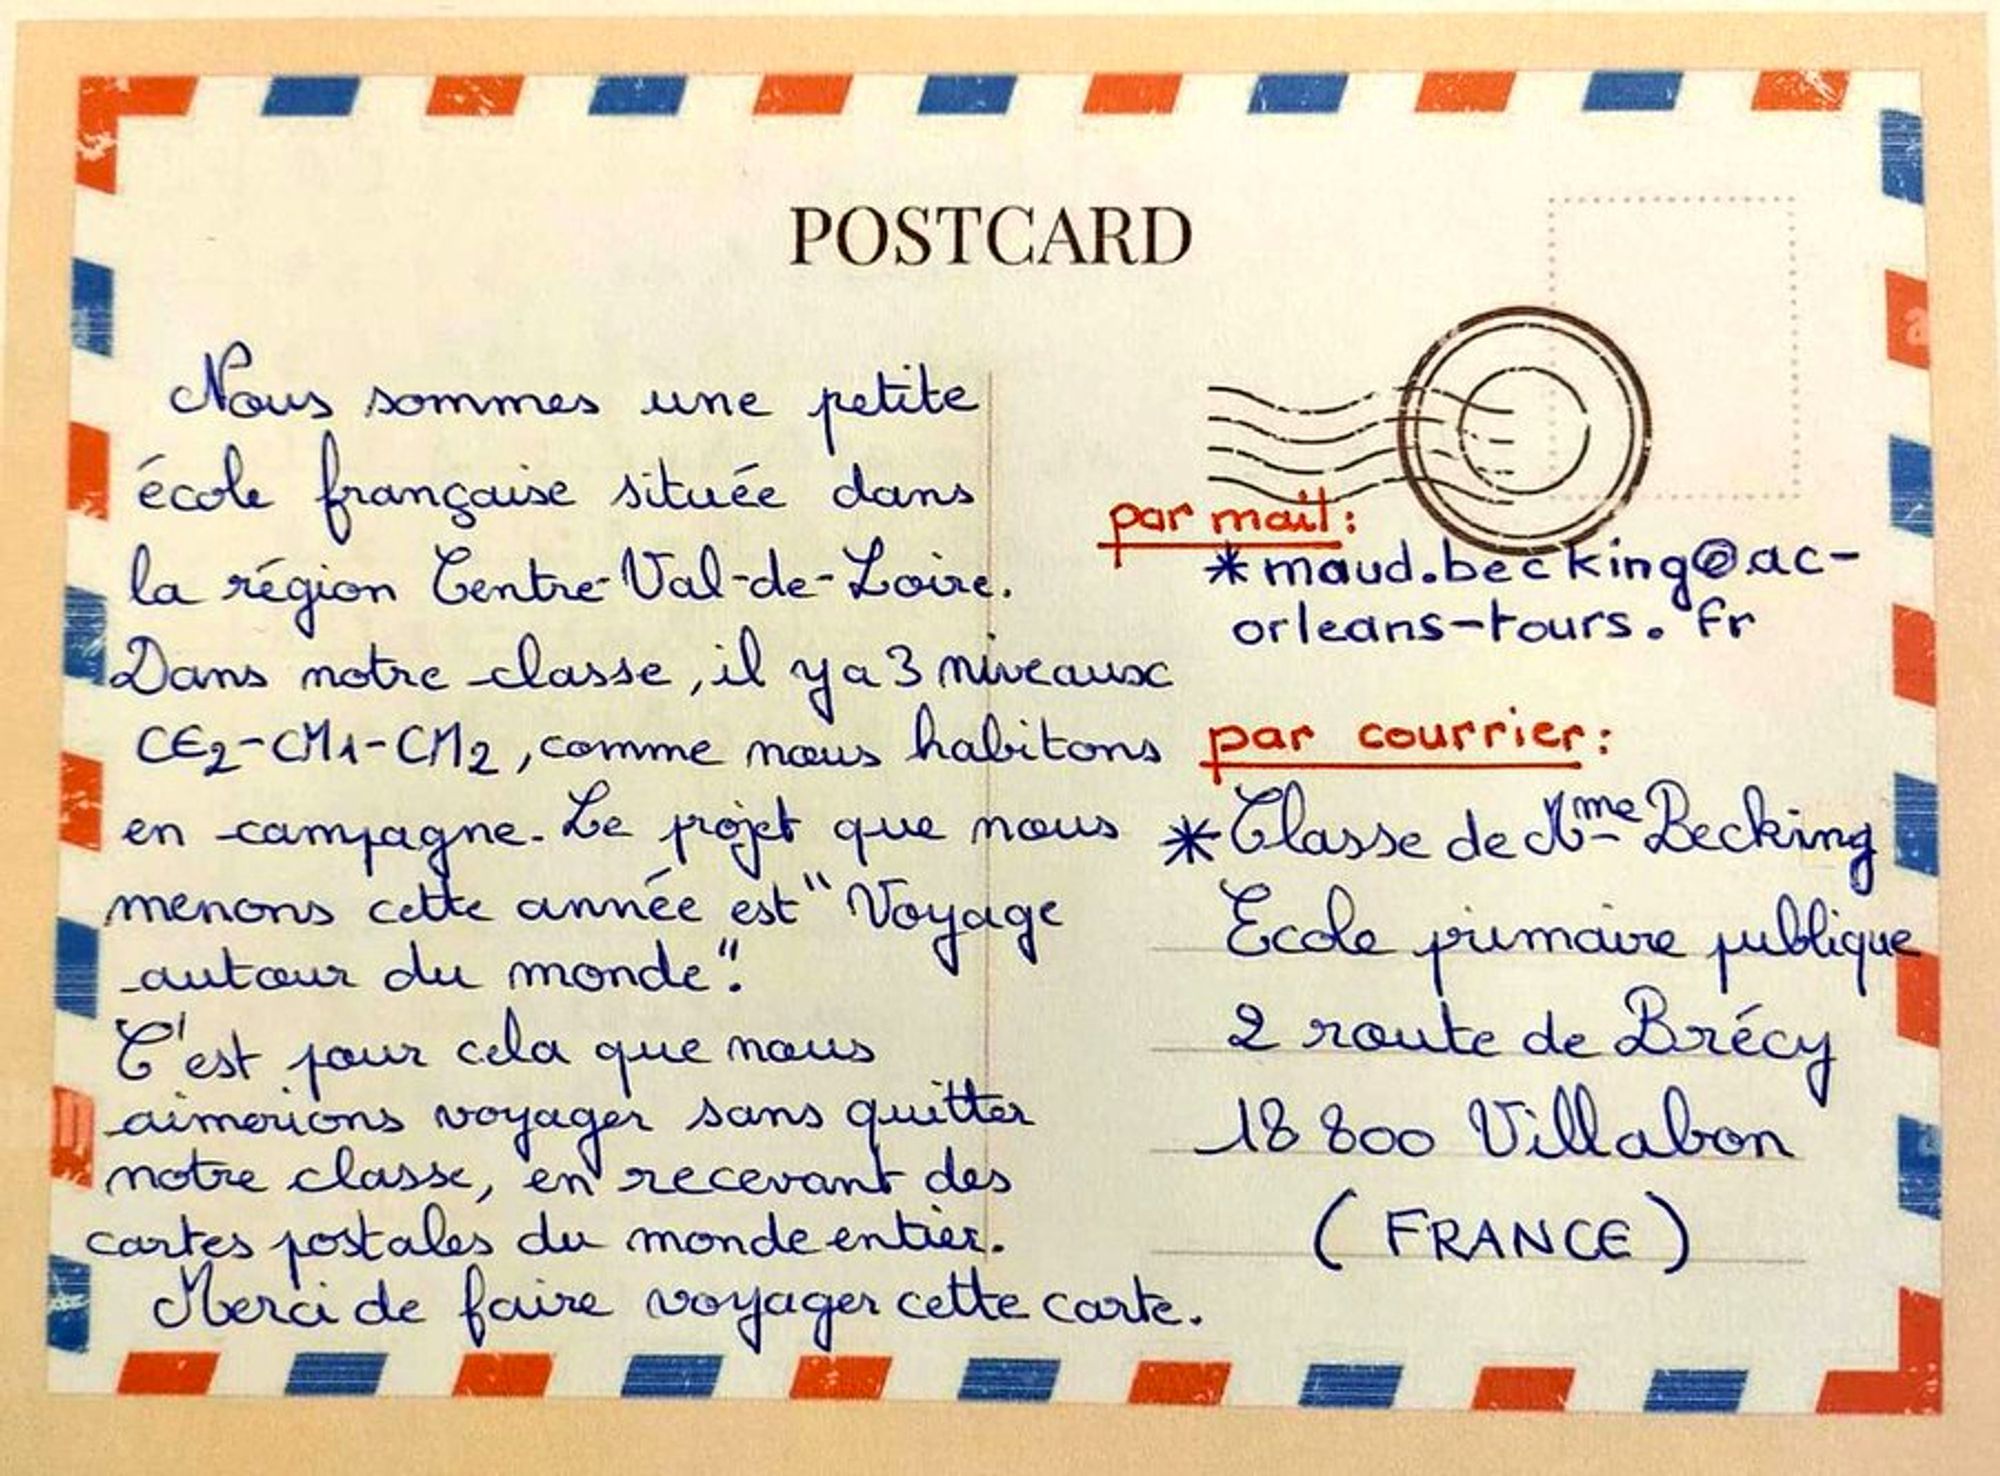 POSTCARD
Nous sommes une petite
école française située dans
la région Centre-Val-de-Loire.
Dans notre classe, il y a 3 niveaux
CE2-CM1-CM2, comme nous habitons
en campagne. Le projet que nous
menons cette année est "Voyage
autour du monde".
C'est pour cela que nous
aimerions voyager sans quitter
notre classe, en recevant des
cartes postales du monde entier.
Merci de faire voyager cette carte.
par mail:
* maud.becking@ac-
orleans-tours.fr
par courrier:
* Classe de Mme Becking
Ecole primaire publique
2 route de Brécy
18 800 Villabon
(FRANCE)